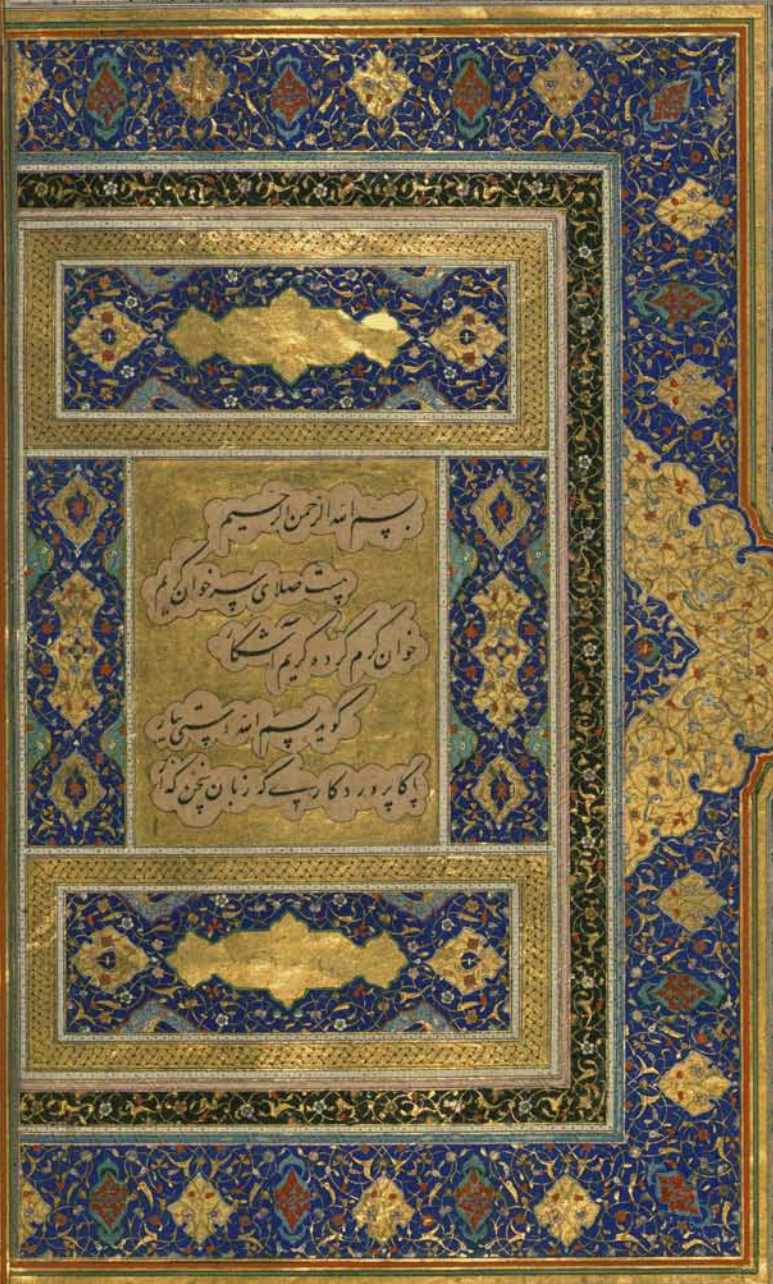 بسم الله الرحمن الرحیم
هست صلای سر خوان کریم
خوان کرم کرده کریم آشکار
کوید بسم الله دستی بیار
پاکا پروردکاری که زبان سخن